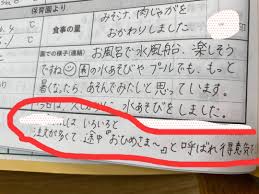 保育園より
食事の量
みそ汁、肉じゃがを
おかわりしました。
園での様子(連絡)
お風呂で水風船、楽しそう
ですね 園の水あそびやプールでも、もっと
暑くなったら、あそんでみたいと思っています。
今日は、 水あそびをしました。
はいろいろと
注文が多くて途中『おひめさま〜』と呼ばれ得意気